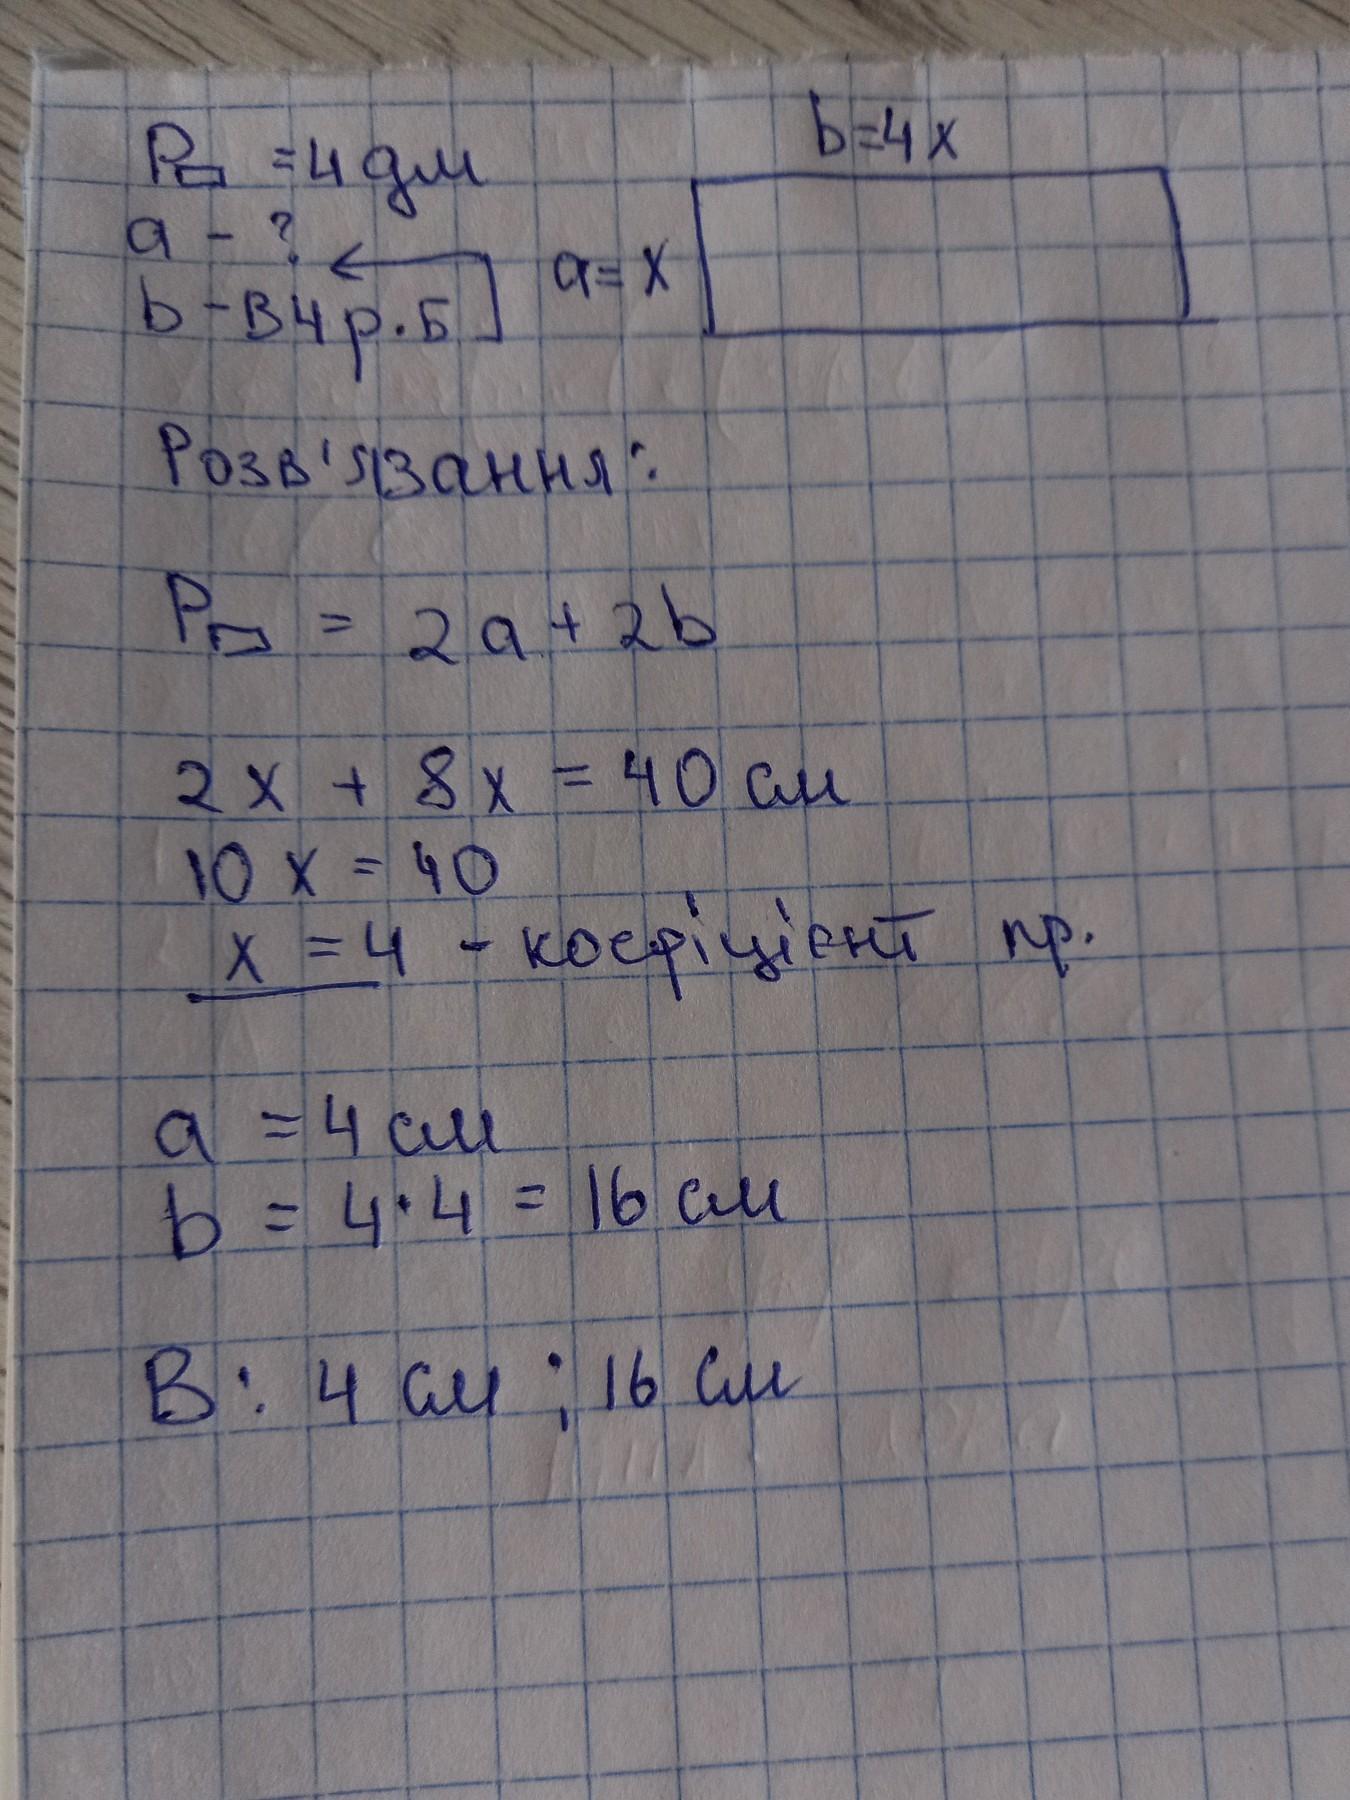 P▭ = 4 дм
a - ?
b - в 4 р. Б
b=4x
a=x
Розв'язання:
P▭ = 2a + 2b
2x + 8x = 40 см
10x = 40
x = 4 - коефіцієнт пр.
a = 4 см
b = 4·4 = 16 см
В: 4 см ; 16 см